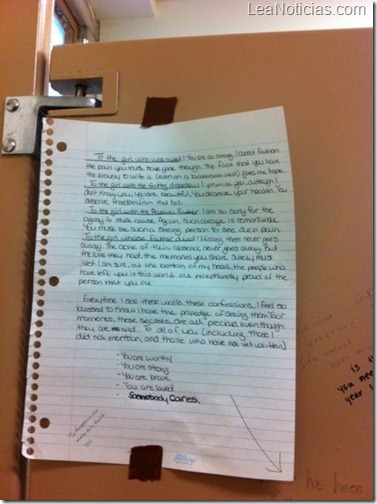 LeaNoticias.com
To the girl who was raped: You are so strong. I cannot fathom
the pain you must have gone through. The fact that you have
the bravery to write it (even on a bathroom wall) gives me hope.
To the girl with the eating disorder: I promise you, although I
don't know you, you are beautiful. You deserve your health. You
deserve freedom from that hell.
To the girl with the Father: I am so sorry for the
agony it must cause. Again, such courage is remarkable.
You must be such a strong person to see such pain.
To the girl whose father died: Missing them never goes
away. The ache of their absence never goes away. But
the love they had, the memories you share surely must
last. I am sure, at the bottom of my heart, the people who
have left you in this world are exceptionally proud of the
person that you are.
Everytime I see these walls, these confessions, I feel so
blessed to know I have the priviledge of seeing them. Your
moments, those secrets are all precious even though
they are sad. To all of you (including those I
did not mention, and those who have not yet written)
- You are worthy
- You are strong
- You are brave
- You are loved
- Somebody Cares.
is
you need
year
has been